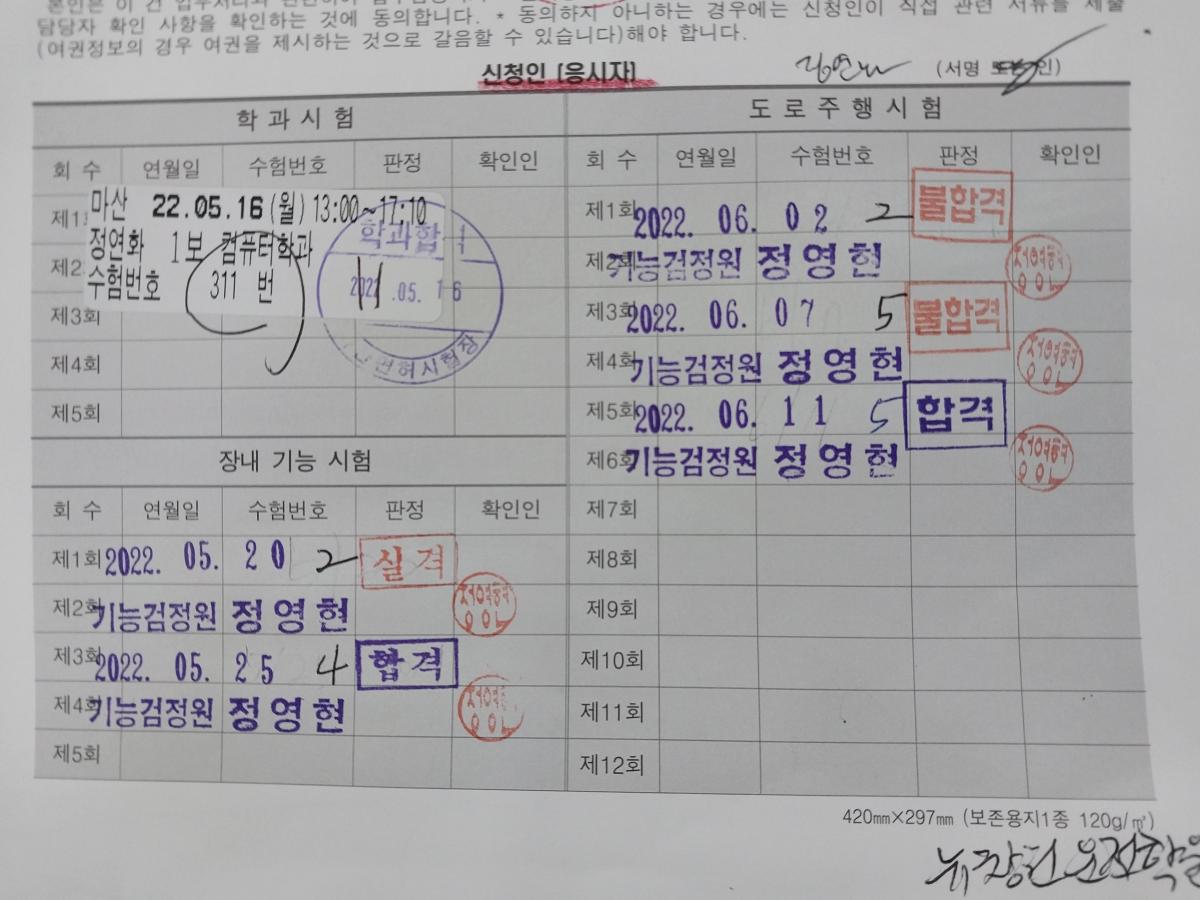 본인은 이 건 업무처리와 관련하여
담당자 확인 사항을 확인하는 것에 동의합니다. * 동의하지 아니하는 경우에는 신청인이 직접 관련 서류를 제출
(여권정보의 경우 여권을 제시하는 것으로 갈음할 수 있습니다)해야 합니다.
신청인 [응시자]
(서명 또는 인)
학 과 시 험
회 수 연월일 수험번호 판정 확인인
제1
마산 22.05.16(월) 13:00~17:10
정연화 1보 컴퓨터학과
제2
수험번호 311 번
학과합격
2022 .05. 16
11
면허시험장
제3회
제4회
제5회
장내 기능 시험
회 수 연월일 수험번호 판정 확인인
제1회 2022. 05. 20 2 실격
제2회 기능검정원 정영현
제3회 2022. 05. 25 4 합격
제4회 기능검정원 정영현
제5회
도 로 주 행 시 험
회 수 연월일 수험번호 판정 확인인
제1회 2022. 06. 02 2 불합격
제2회 기능검정원 정영현
제3회 2022. 06. 07 5 불합격
제4회 기능검정원 정영현
제5회 2022. 06. 11 5 합격
제6회 기능검정원 정영현
제7회
제8회
제9회
제10회
제11회
제12회
420㎜×297㎜ (보존용지1종 120g/㎡)
뉴창원운전학원